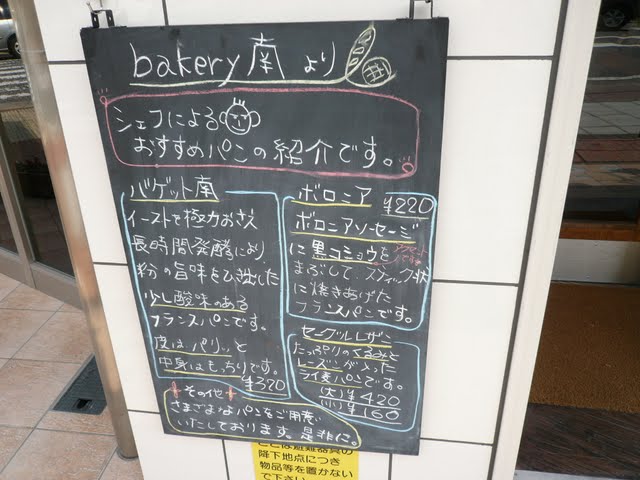 bakery 南 より
シェフによる
おすすめパンの紹介です。
バゲット南
イーストを極力おさえ
長時間発酵により
粉の旨味をひき出した
少し酸味のある
フランスパンです。
皮はパリッと
中身はもっちりです。
¥370
ボロニア
¥220
ボロニアソーセージ
に黒コショウを
まぶして、スティック状
に焼きあげた
フランスパンです。
セーグルレザン
たっぷりのくるみと
レーズンが入った
ライ麦パンです。
(大)¥420
(小)¥160
その他
さまざまなパンをご用意
いたしております。是非に。
ここは避難器具の
降下地点につき
物品等を置かない
で下さい